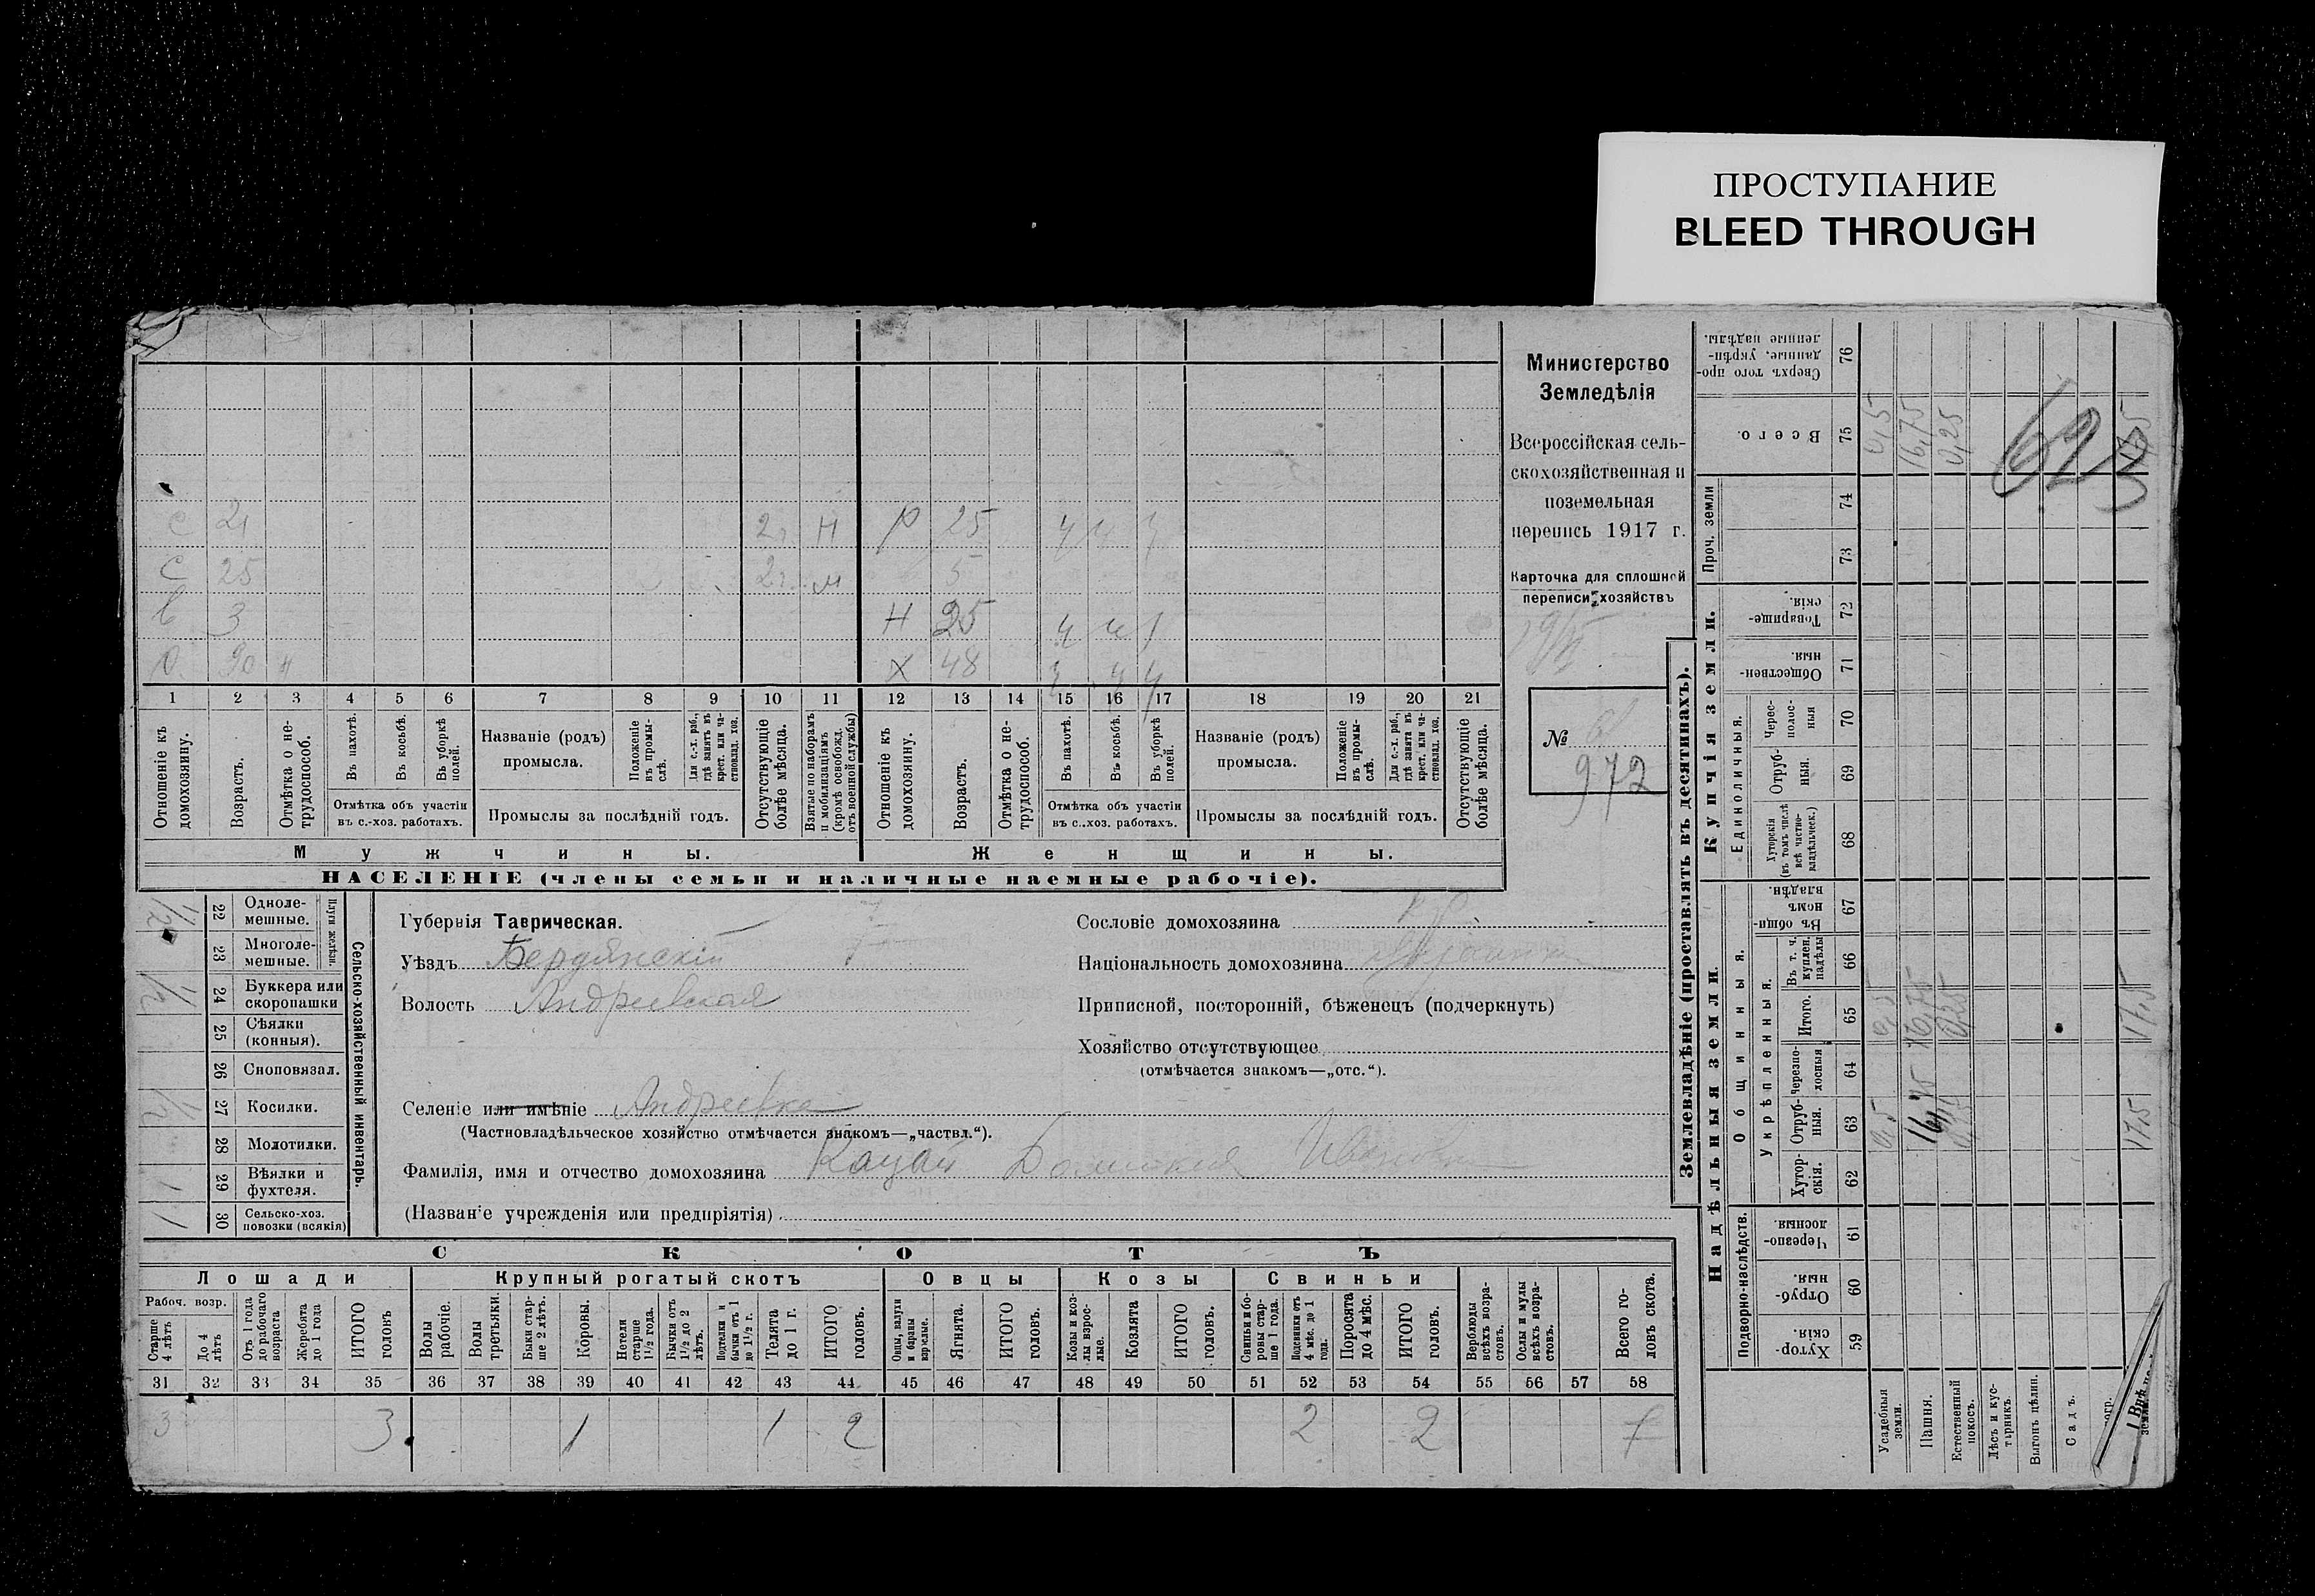 ПРОСТУПАНИЕ
BLEED THROUGH
Министерство
Земледѣлія
Всероссійская сель-
скохозяйственная и
поземельная
перепись 1917 г.
Карточка для сплошной
переписи хозяйствъ
№
972
с 21 2 г. Н Р 25
с 25 2 г. м 5
3 Н 25
90 Х 48
1 2 3 4 5 6 7 8 9 10 11 12 13 14 15 16 17 18 19 20 21
Отношеніе къ домохозяину.
Возрастъ.
Отмѣтка о не-трудоспособ.
Въ пахотѣ.
Въ косьбѣ.
Въ уборкѣ полей.
Отмѣтка объ участіи
въ с.-хоз. работахъ.
Названіе (родъ)
промысла.
Положеніе въ промы-слѣ.
Для с.-х. раб., гдѣ занятъ въ крест. или ча-стновлад. хоз.
Промыслы за послѣдній годъ.
Отсутствующіе болѣе мѣсяца.
Взятые по наборамъ и мобилизаціямъ (кромѣ освобожд. отъ военной службы)
Отношеніе къ домохозяину.
Возрастъ.
Отмѣтка о не-трудоспособ.
Въ пахотѣ.
Въ косьбѣ.
Въ уборкѣ полей.
Отмѣтка объ участіи
въ с.-хоз. работахъ.
Названіе (родъ)
промысла.
Положеніе въ промы-слѣ.
Для с.-х. раб., гдѣ занята въ крест. или ча-стновлад. хоз.
Промыслы за послѣдній годъ.
Отсутствующіе болѣе мѣсяца.
Мужчины.
Женщины.
НАСЕЛЕНІЕ (члены семьи и наличные наемные рабочіе).
1/2 22 Одноле-мешные.
23 Многоле-мешные.
Плуги желѣзн.
1/2 24 Буккера или скоропашки
25 Сѣялки (конныя).
26 Сноповязал.
1/2 27 Косилки.
28 Молотилки.
1 29 Вѣялки и фухтеля.
1 30 Сельско-хоз. повозки (всякія)
Сельско-хозяйственный инвентарь.
Губернія Таврическая.
Уѣздъ Бердянскій
Волость Андреевская
Селеніе или имѣніе Андреевка
(Частновладѣльческое хозяйство отмѣчается знакомъ—„частвл.“).
Фамилія, имя и отчество домохозяина
(Названіе учрежденія или предпріятія)
Сословіе домохозяина
Національность домохозяина
Приписной, посторонній, бѣженецъ (подчеркнуть)
Хозяйство отсутствующее
(отмѣчается знакомъ—„отс.“).
СКОТЪ
Лошади
Крупный рогатый скотъ
Овцы
Козы
Свиньи
Рабоч. возр.
Старше 4 лѣтъ
До 4 лѣтъ
Отъ 1 года до рабочаго возраста
Жеребята до 1 года
ИТОГО головъ
Волы рабочіе.
Волы третьяки.
Быки стар-ше 2 лѣтъ.
Коровы.
Нетели старше 1½ года.
Бычки отъ 1½ до 2 лѣтъ.
Подтелки и бычки отъ 1 до 1½ г.
Телята до 1 г.
ИТОГО головъ.
Овцы, валухи и бараны взрослые.
Ягнята.
ИТОГО головъ.
Козы и коз-лы взрос-лые.
Козлята
ИТОГО головъ.
Свиньи и бо-ровы стар-ше 1 года.
Подсвинки отъ 4 мѣс. до 1 года.
Поросята до 4 мѣс.
ИТОГО головъ.
Верблюды всѣхъ возра-стовъ.
Ослы и мулы всѣхъ возра-стовъ.
Всего го-ловъ скота.
31 32 33 34 35 36 37 38 39 40 41 42 43 44 45 46 47 48 49 50 51 52 53 54 55 56 57 58
3 3 1 1 2 2 2 7
Землевладѣніе (проставлять въ десятинахъ).
Купчія земли.
Надѣльныя земли.
Проч. земли
Единоличныя.
Общинныя.
Укрѣпленныя.
Подворно-наслѣдств.
Сверхъ того про-данные, укрѣп-ленные надѣлы. 76
Всего. 75
74
73
Товарище-скія. 72
Обществен-ныя. 71
Черес-полос-ныя 70
Отруб-ныя. 69
Хуторскія (въ томъ числѣ всѣ частно-владѣльческ.) 68
Въ общин-номъ владѣн. 67
Въ т. ч. куплен. надѣлы 66
Итого. 65
Черезпо-лосныя 64
Отруб-ныя. 63
Хутор-скія. 62
Черезпо-лосныя. 61
Отруб-ныя. 60
Хутор-скія. 59
Усадебныя земли.
Пашня.
Естественный покосъ.
Лѣсъ и кус-тарникъ.
Выгонъ цѣлин.
Садъ.
0,5 0,5 0,5
16,75 16,75 16,75
0,25 0,25
17,5 17,5